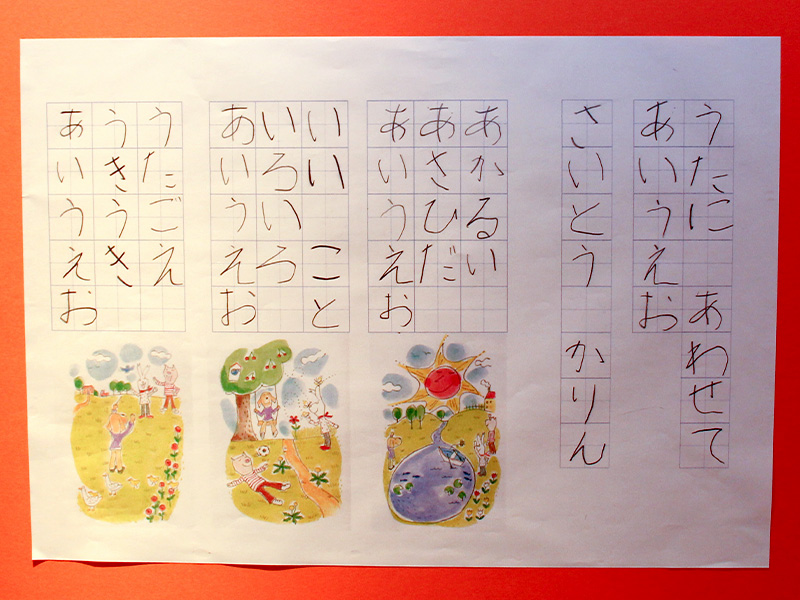 うたに あわせて
あいうえお
さいとう かりん
あかるい
あさひだ
あいうえお
いい こと
いろいろ
あいうえお
うたごえ
うきうき
あいうえお